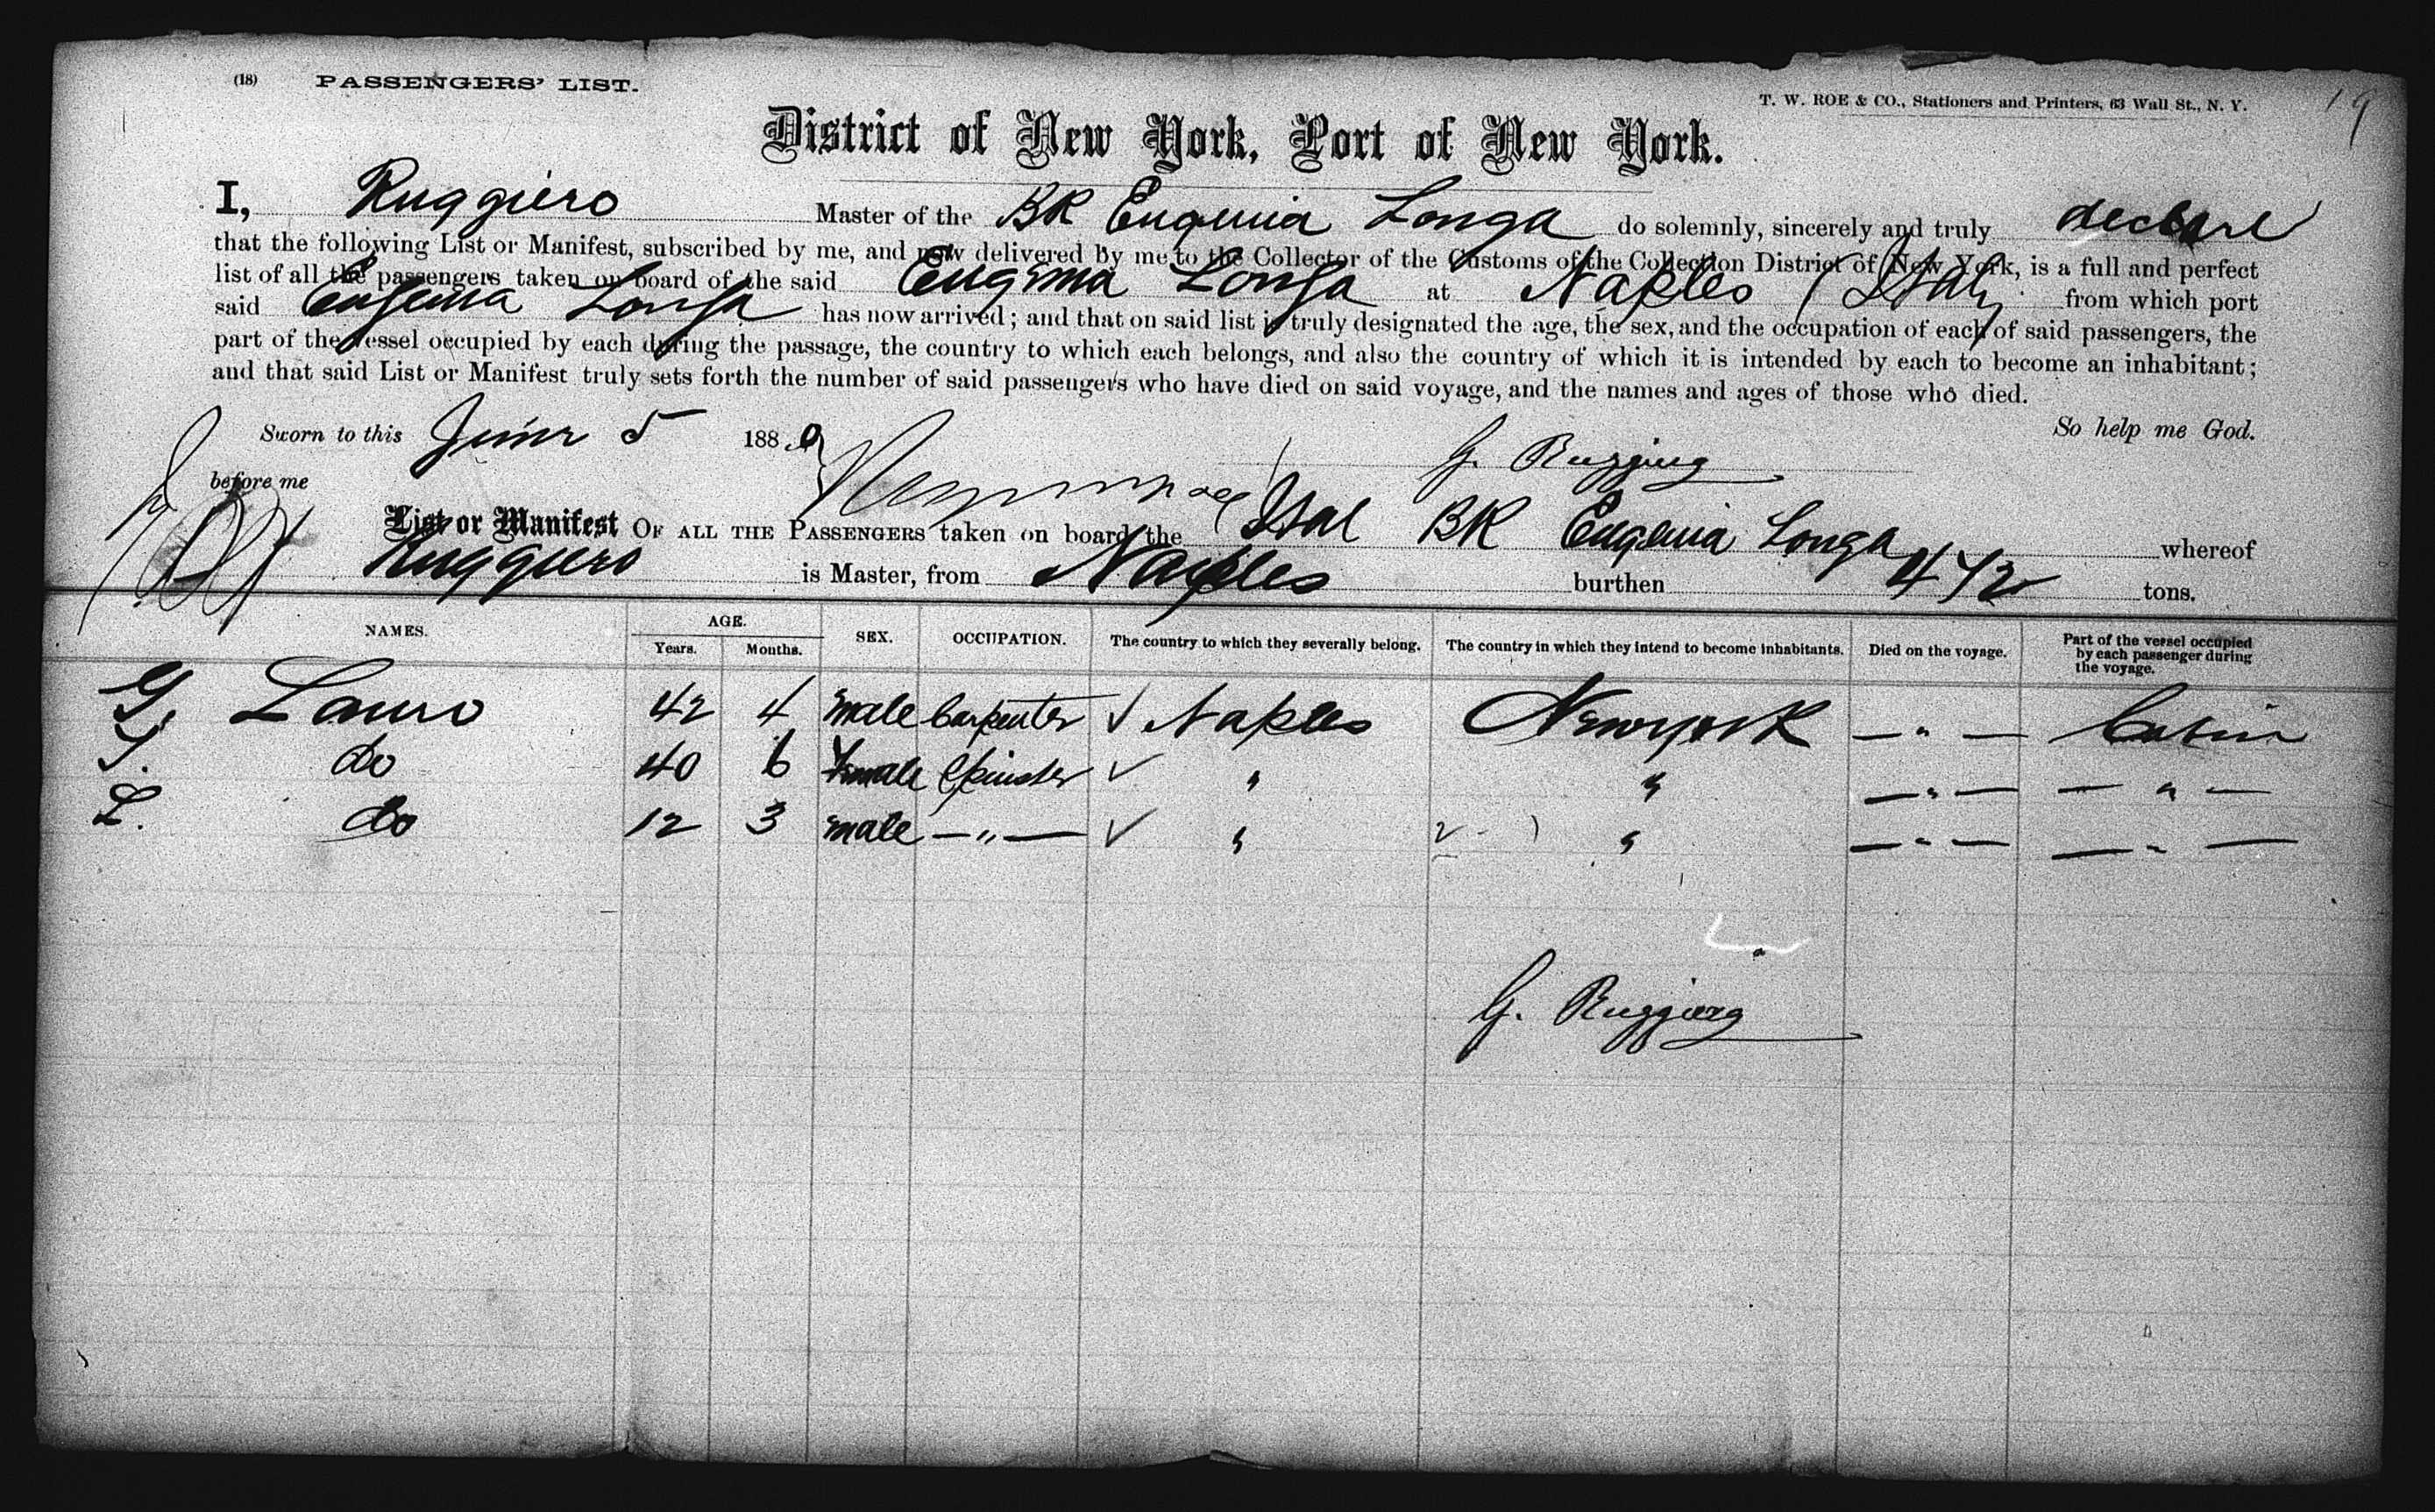 (18) PASSENGERS' LIST.
T. W. ROE & CO., Stationers and Printers, 63 Wall St., N. Y.
19
District of New York, Port of New York.
I, Ruggiero Master of the BK Eugenia Longa do solemnly, sincerely and truly declare
that the following List or Manifest, subscribed by me, and now delivered by me to the Collector of the Customs of the Collection District of New York, is a full and perfect
list of all the passengers taken on board of the said Eugenia Longa at Naples / Italy from which port
said Eugenia Longa has now arrived; and that on said list is truly designated the age, the sex, and the occupation of each of said passengers, the
part of the vessel occupied by each during the passage, the country to which each belongs, and also the country of which it is intended by each to become an inhabitant;
and that said List or Manifest truly sets forth the number of said passengers who have died on said voyage, and the names and ages of those who died.
Sworn to this June 5 1880 So help me God.
before me G. Ruggiero
List or Manifest OF ALL THE PASSENGERS taken on board the Ital BK Eugenia Longa whereof
Ruggiero is Master, from Naples burthen 472 tons.
NAMES. AGE. Years. Months. SEX. OCCUPATION. The country to which they severally belong. The country in which they intend to become inhabitants. Died on the voyage. Part of the vessel occupied by each passenger during the voyage.
G. Lauro 42 4 male Carpenter ✓ Naples New York — " — Cabin
do 40 6 female Spinster ✓ " " — " — — " —
L. do 12 3 male — " — ✓ " " — " — — " —
G. Ruggiero